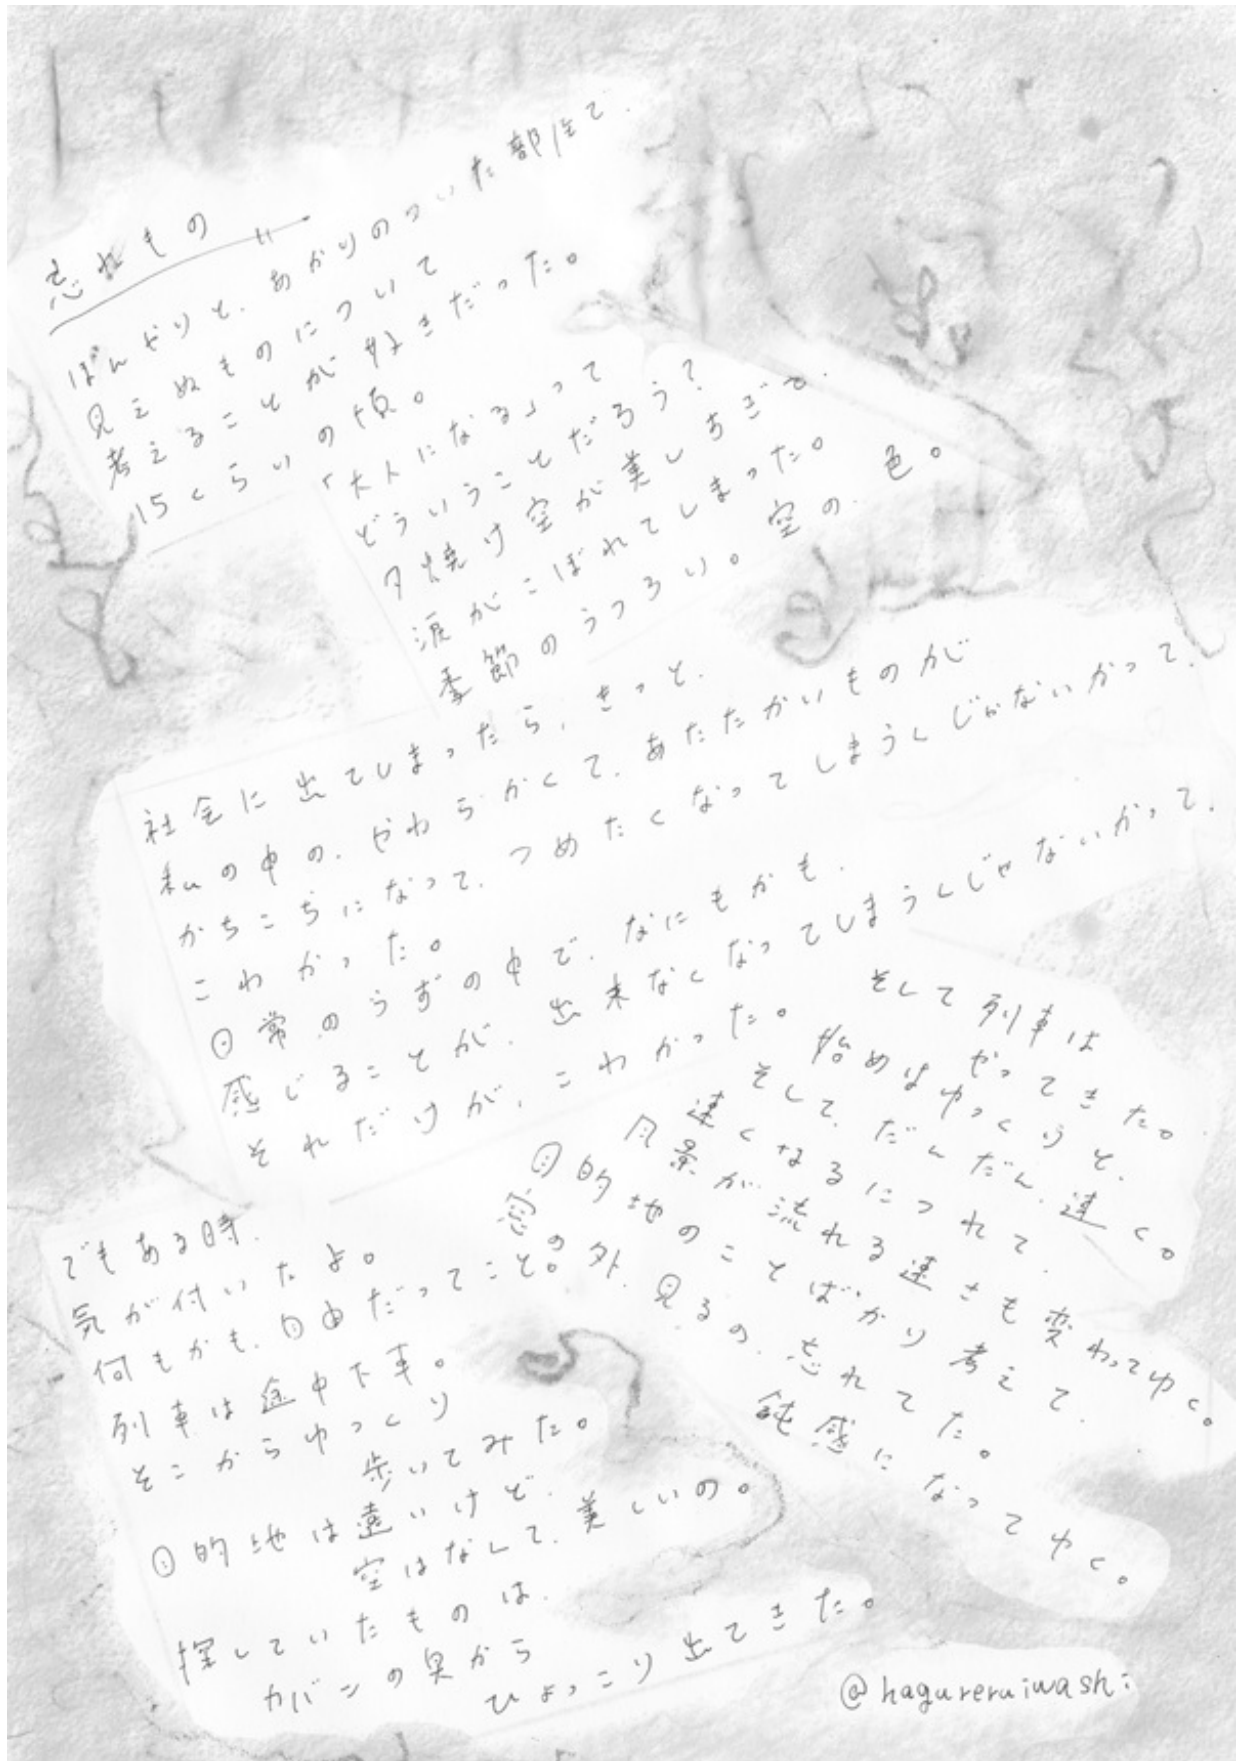 忘れもの
ぼんやりと、あかりのついた部屋で、
見えぬものについて
考えることが好きだった。
15くらいの頃。
「大人になる」って
どういうことだろう?
夕焼け空が美しすぎて、
涙がこぼれてしまった。
季節のうつろい。空の、色。
社会に出てしまったら、きっと、
私の中の、やわらかくて、あたたかいものが
かちこちになって、つめたくなってしまうんじゃないかって、
こわかった。
日常のうずの中で、なにもかも、
感じることが、出来なくなってしまうんじゃないかって、
それだけが、こわかった。
そして列車は
やってきた。
始めはゆっくりと、
そして、だんだん、速く。
速くなるにつれて、
風景が流れる速さも変わってゆく。
目的地のことばかり考えて、
窓の外、見るの、忘れてた。
鈍感になってゆく。
でもある時、
気が付いたよ。
何もかも、自由だってこと。
列車は途中下車。
そこからゆっくり
歩いてみた。
目的地は遠いけど、
空はなして、美しいの。
探していたものは、
カバンの奥から
ひょっこり出てきた。
@hagureruiwashi